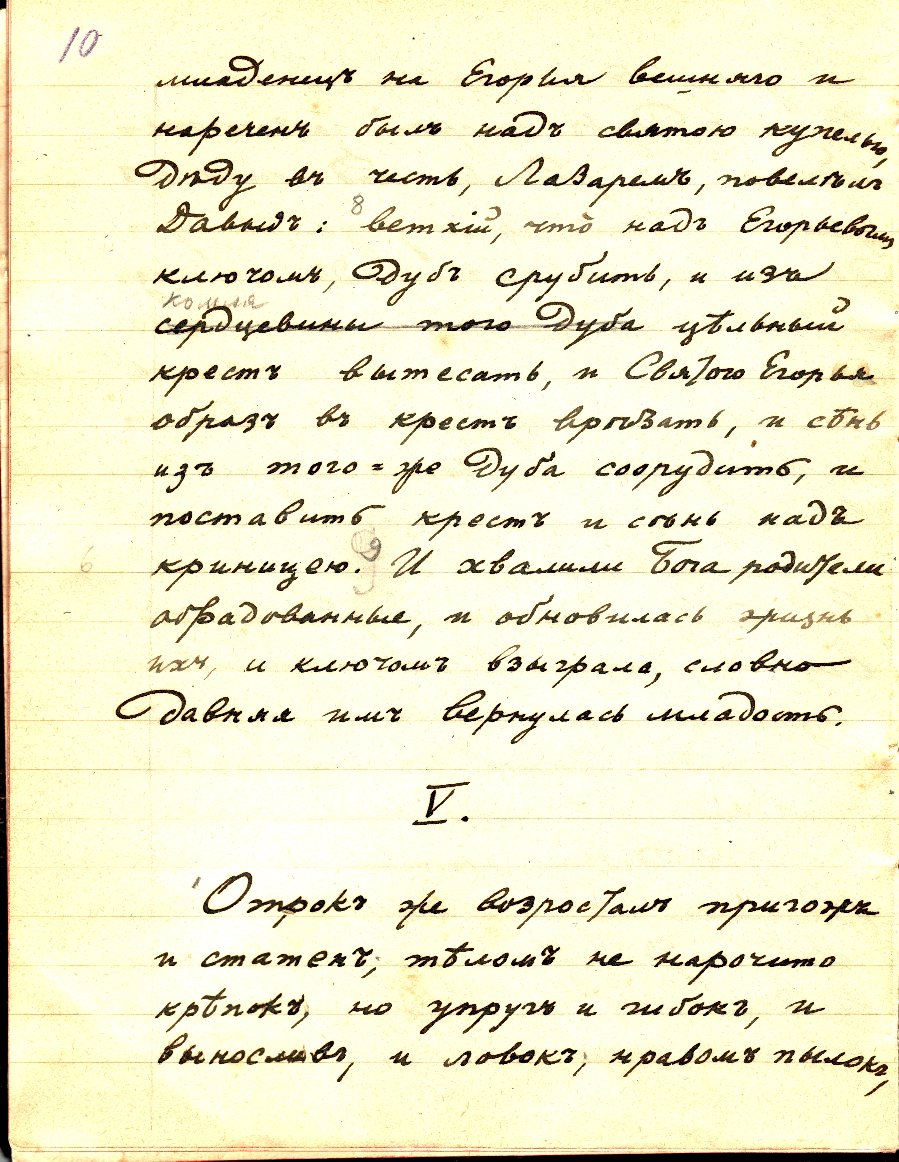 10
младенецъ на Егорья вешняго и
нареченъ былъ надъ святою купелью,
Дѣду въ честь, Лазаремъ, повелѣлъ
Давыдъ: 8 ветхій, что надъ Егорьевымъ
ключомъ, Дубъ срубить, и изъ
комля
сердцевины того Дуба цѣльный
крестъ вытесать, и Святого Егорья
образъ въ крестъ врѣзать, и сѣнь
изъ того=же Дуба соорудить, и
поставить крестъ и сѣнь надъ
6 криницею. 9 И хвалили Бога родители
обрадованные, и обновилась жизнь
ихъ, и ключомъ взыграла, словно
давняя имъ вернулась младость.
V.
Отрокъ же возросталъ пригожъ
и статенъ, тѣломъ не нарочито
крѣпокъ, но упругъ и гибокъ, и
выносливъ, и ловокъ, нравомъ пылокъ,